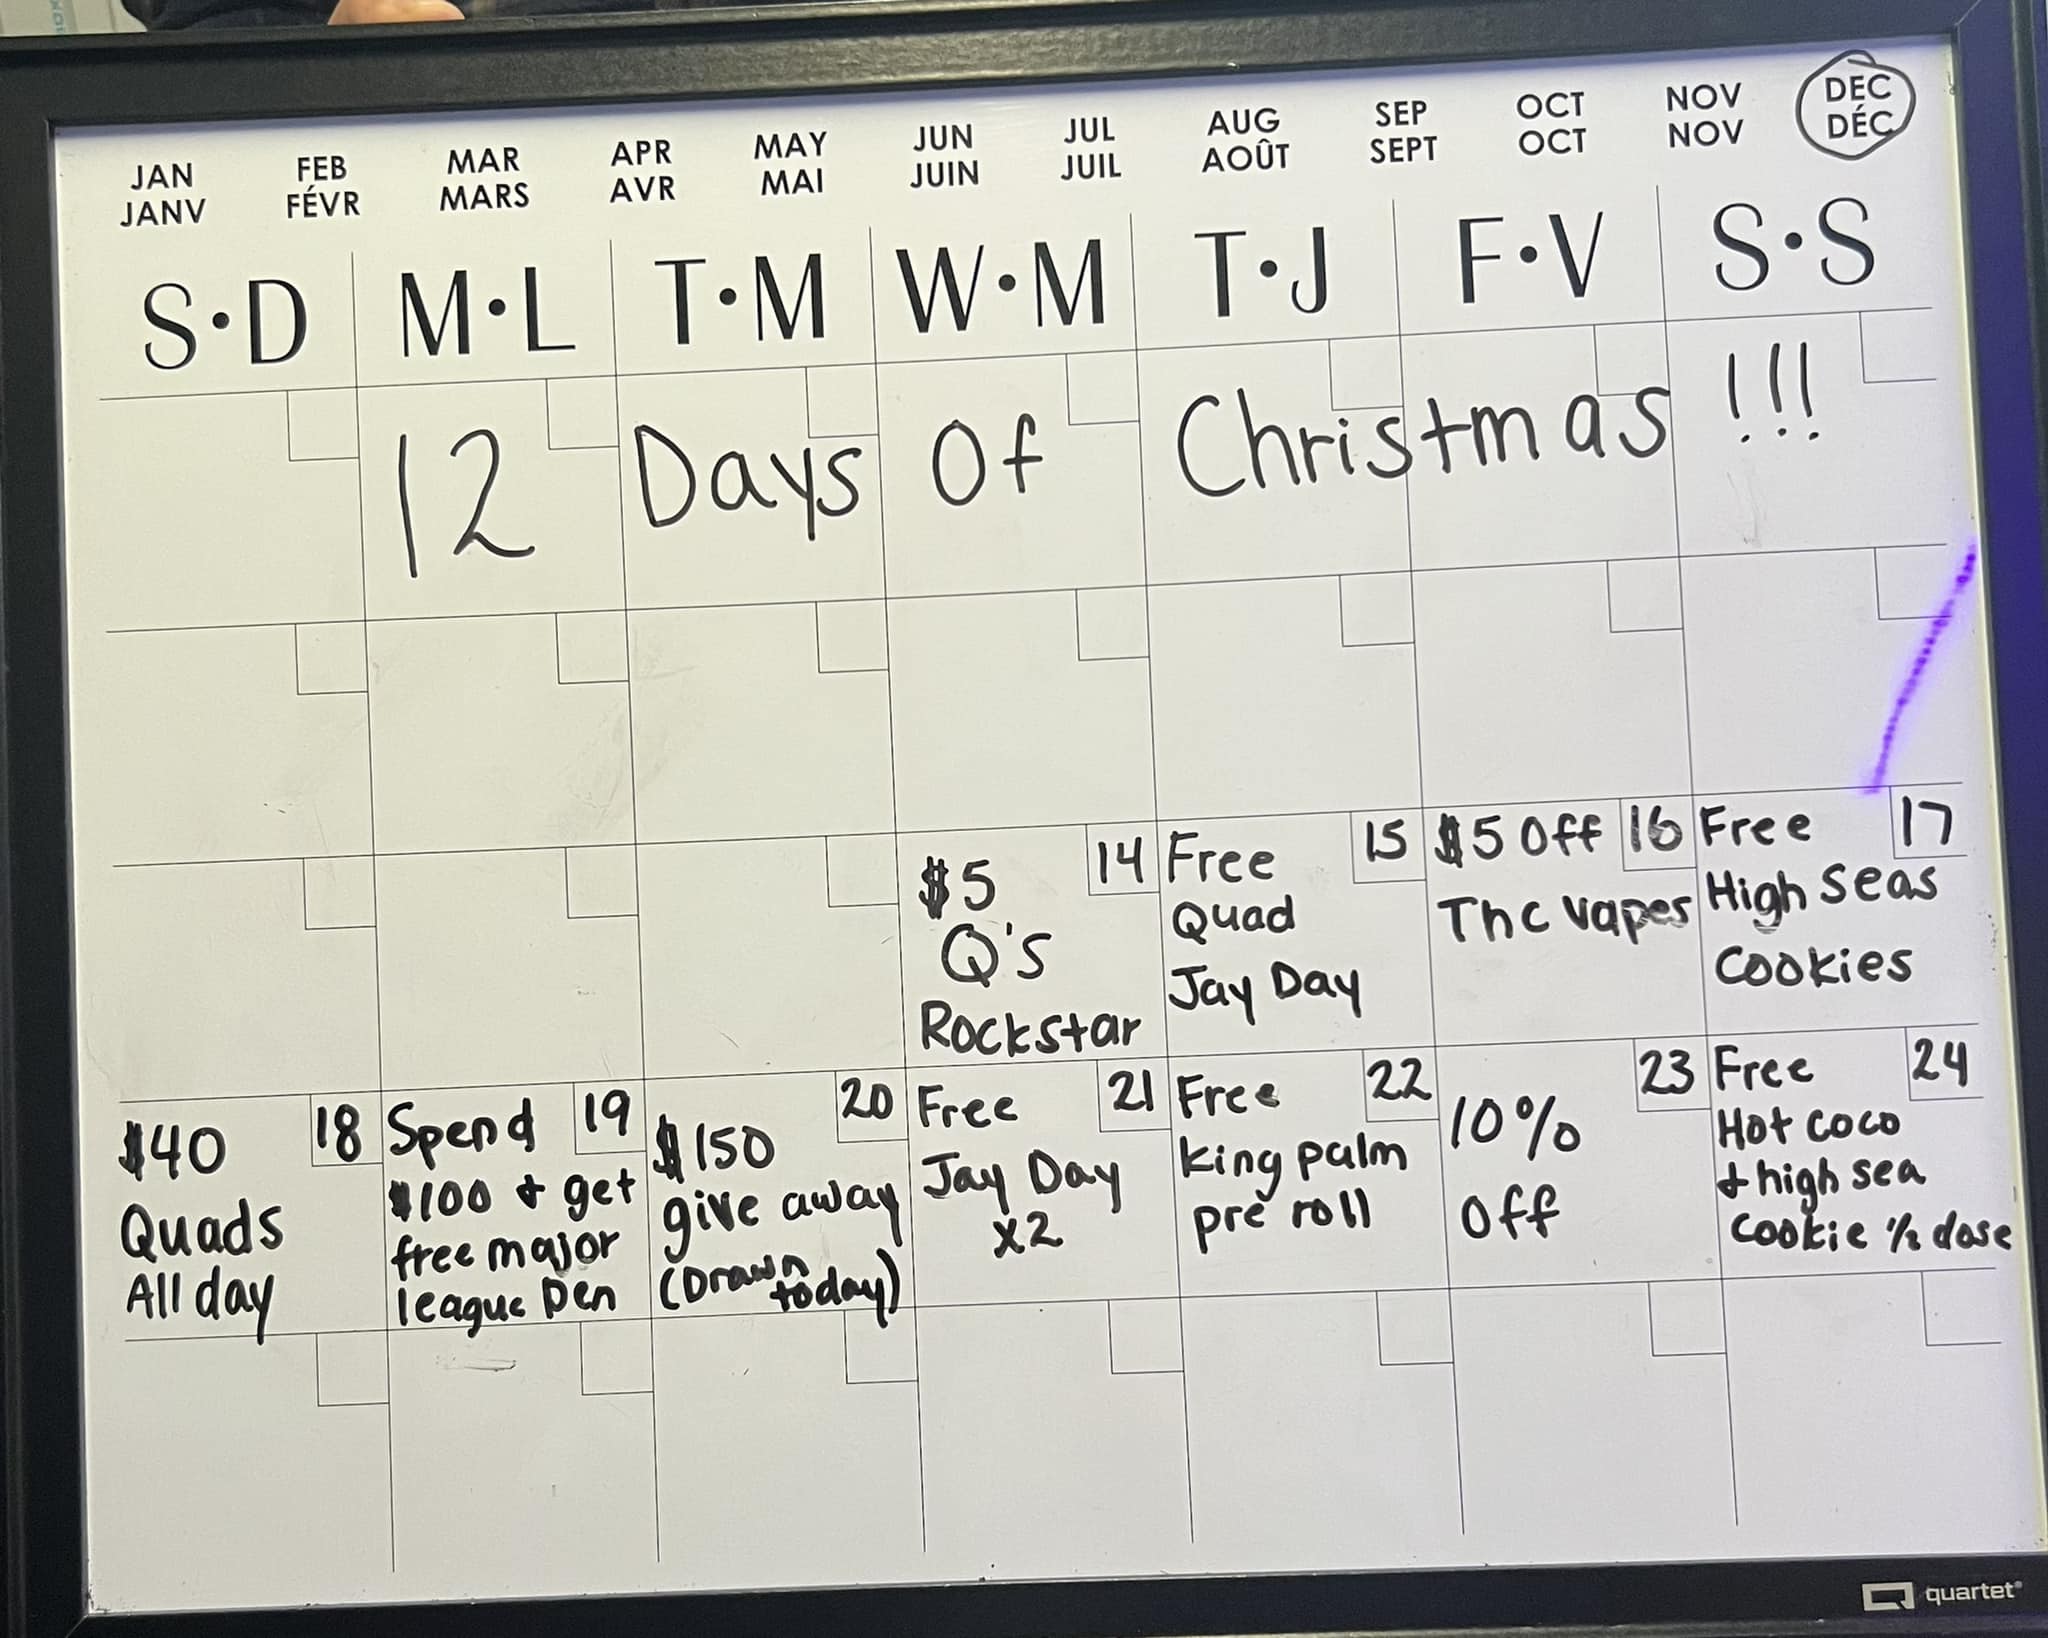 JAN FEB MAR APR MAY JUN JUL AUG SEP OCT NOV DEC
JANV FÉVR MARS AVR MAI JUIN JUIL AOÛT SEPT OCT NOV DÉC
S•D M•L T•M W•M T•J F•V S•S
12 Days Of Christmas !!!
14
$5
Q's
Rockstar
15
Free
Quad
Jay Day
16
$5 Off
Thc vapes
17
Free
High Seas
Cookies
18
$40
Quads
All day
19
Spend
$100 & get
free major
league Pen
20
$150
give away
(Drawn
today)
21
Free
Jay Day
x2
22
Free
king palm
pre roll
23
10%
Off
24
Free
Hot coco
& high sea
Cookie 1/2 dose
quartet®